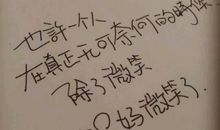 也許一个人
在真正无可奈何的時候
除了微笑
只好微笑了.